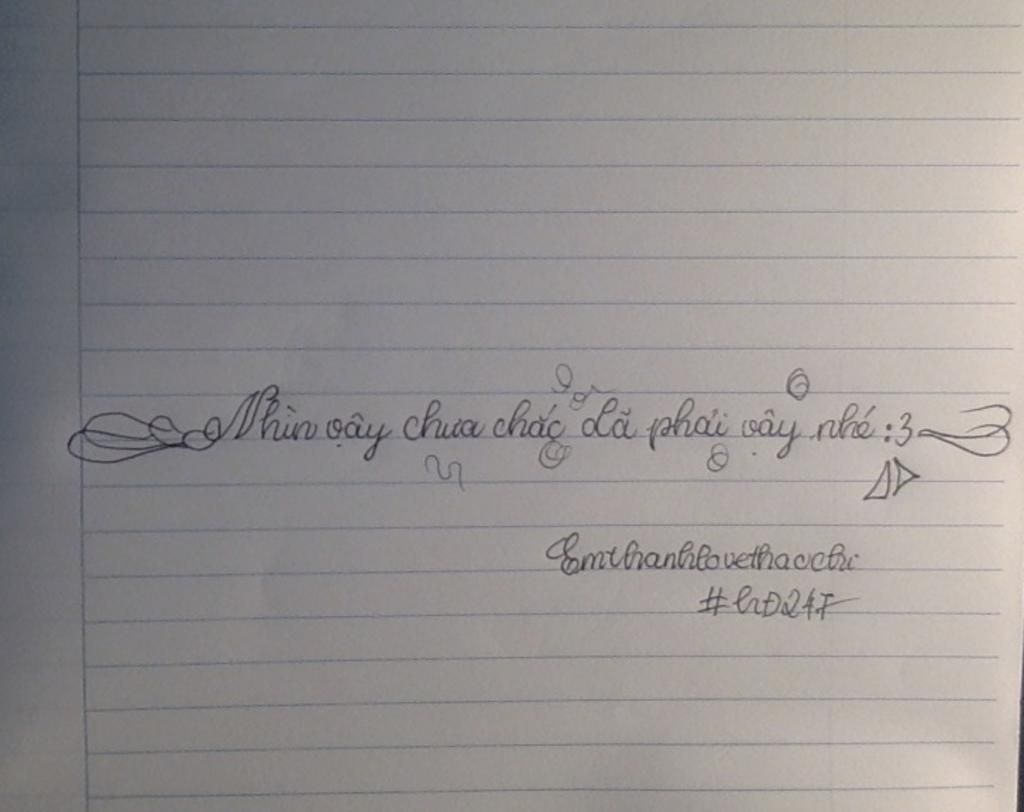 Nhìn vậy chưa chắc đã phải vậy nhé :3
Emthanhlovethaochi